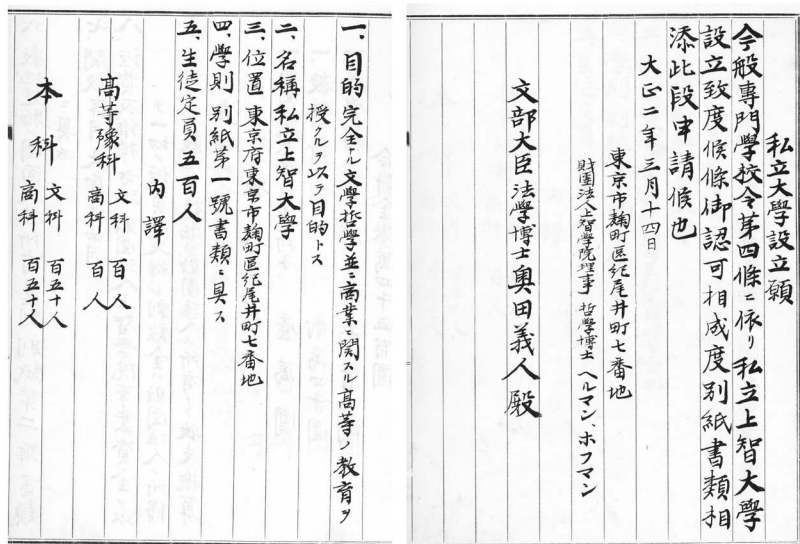 私立大學設立願
今般專門學校令第四條ニ依リ私立上智大學
設立致度候條御認可相成度別紙書類相
添此段申請候也
大正二年三月十四日
東京市麹町區紀尾井町七番地
財團法人上智學院理事 哲學博士 ヘルマン、ホフマン
文部大臣法學博士奥田義人殿
一、目的 完全ナル文學哲學並ニ商業ニ関スル高等ノ教育ヲ
授クルヲ以テ目的トス
二、名稱 私立上智大學
三、位置 東京府東京市麹町區紀尾井町七番地
四、學則 別紙第一號書類ニ具ス
五、生徒定員五百人
内譯
高等豫科 文科 百人
商科 百人
本科 文科 百五十人
商科 百五十人